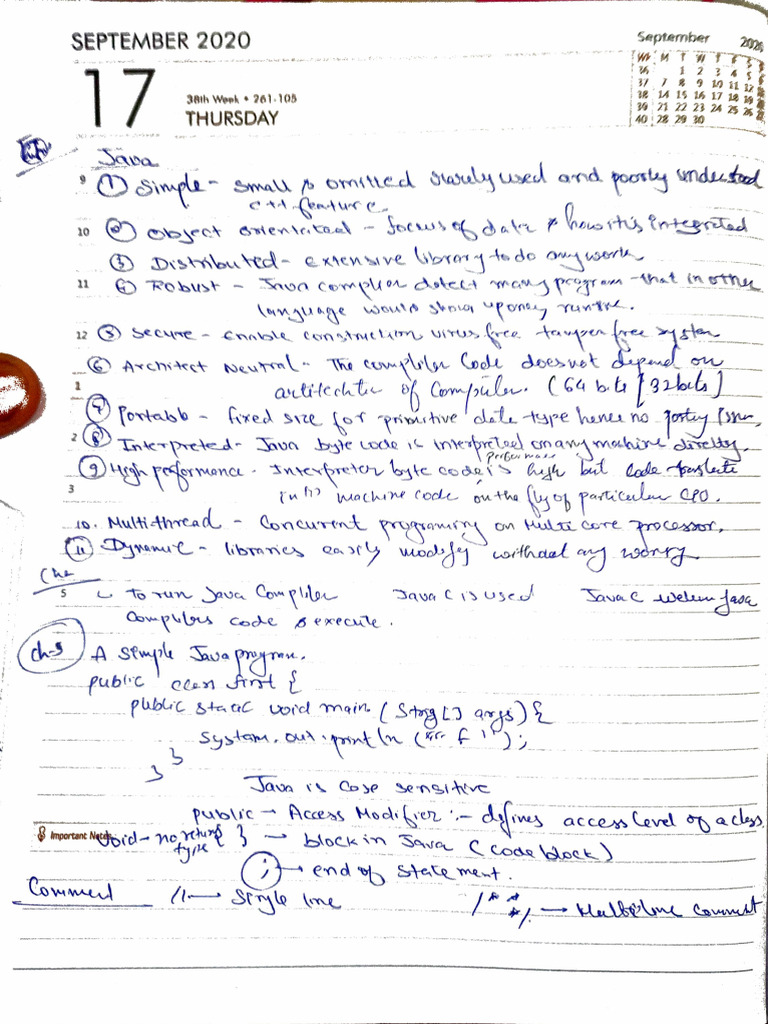 SEPTEMBER 2020
September 2020
Wk M T W T F S S
36 1 2 3 4 5
37 7 8 9 10 11 12
38 14 15 16 17 18 19
39 21 22 23 24 25 26
40 28 29 30
17
38th Week • 261-105
THURSDAY
Java
9 ① Simple - small & omitted rarely used and poorly understood
c++ feature
10 ② Object orientated - focus of data & how it is integrated
③ Distributed - extensive library to do any work
11 ④ Robust - Java complier detect many program that in other
language would show uponey runtime.
12 ⑤ Secure - enable construction virus free tamper free system
⑥ Architect Neutral - The compliler Code does not depend on
1 of Computer. (64 bits / 32 bits)
⑦ Portabb - fixed size for primitive data type hence no
2 ⑧ Interpreted - Java byte code is interpreted on any machine directly.
⑨ High performance - Interpreter byte code is performance high but code translate
3 into machine code on the fly of particular CPU.
10. Multithread - Concurrent programing on Multi core processor.
⑪ Dynamic - libraries easily modify without any worry
5 to run Java Compliler Javac is used Javac welcom Java
Compliles code & execute.
ch-3 A simple Java program.
public class first {
public static void main (Strng[] args) {
System.out.println ("f");
}
}
Java is case sensitive
public → Access Modifier :- defines access level of a class.
Important Notes void - no return type { } → block in Java (code block)
; → end of statement.
Comment // → Single line /* * */ → Multiline comment